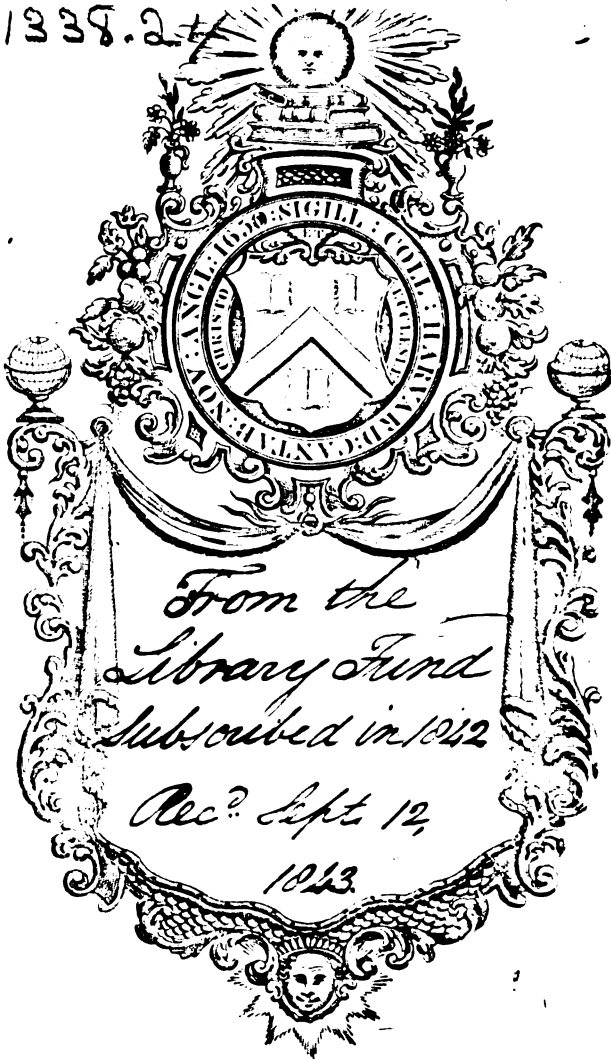 1338.24
SIGILL : COLL : HARVARD : CANTAB : NOV : ANGL : 1650 :
CHRISTO ET ECCLESIÆ
From the
Library Fund
Subscribed in 1842
Recᵈ Sept. 12,
1843.